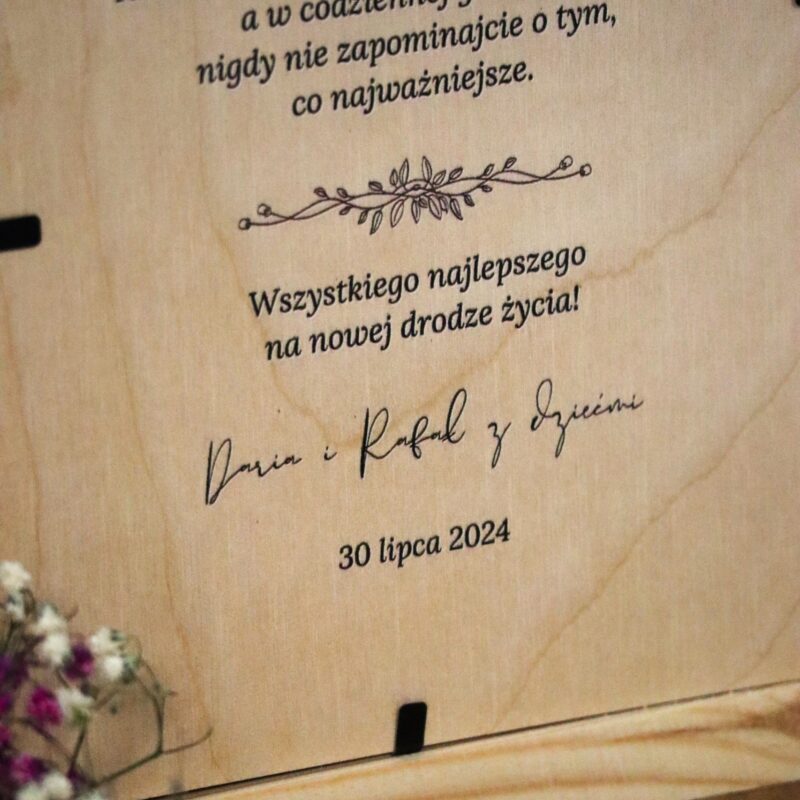 a w codziennej
nigdy nie zapominajcie o tym,
co najważniejsze.
Wszystkiego najlepszego
na nowej drodze życia!
Daria i Rafał z dziećmi
30 lipca 2024